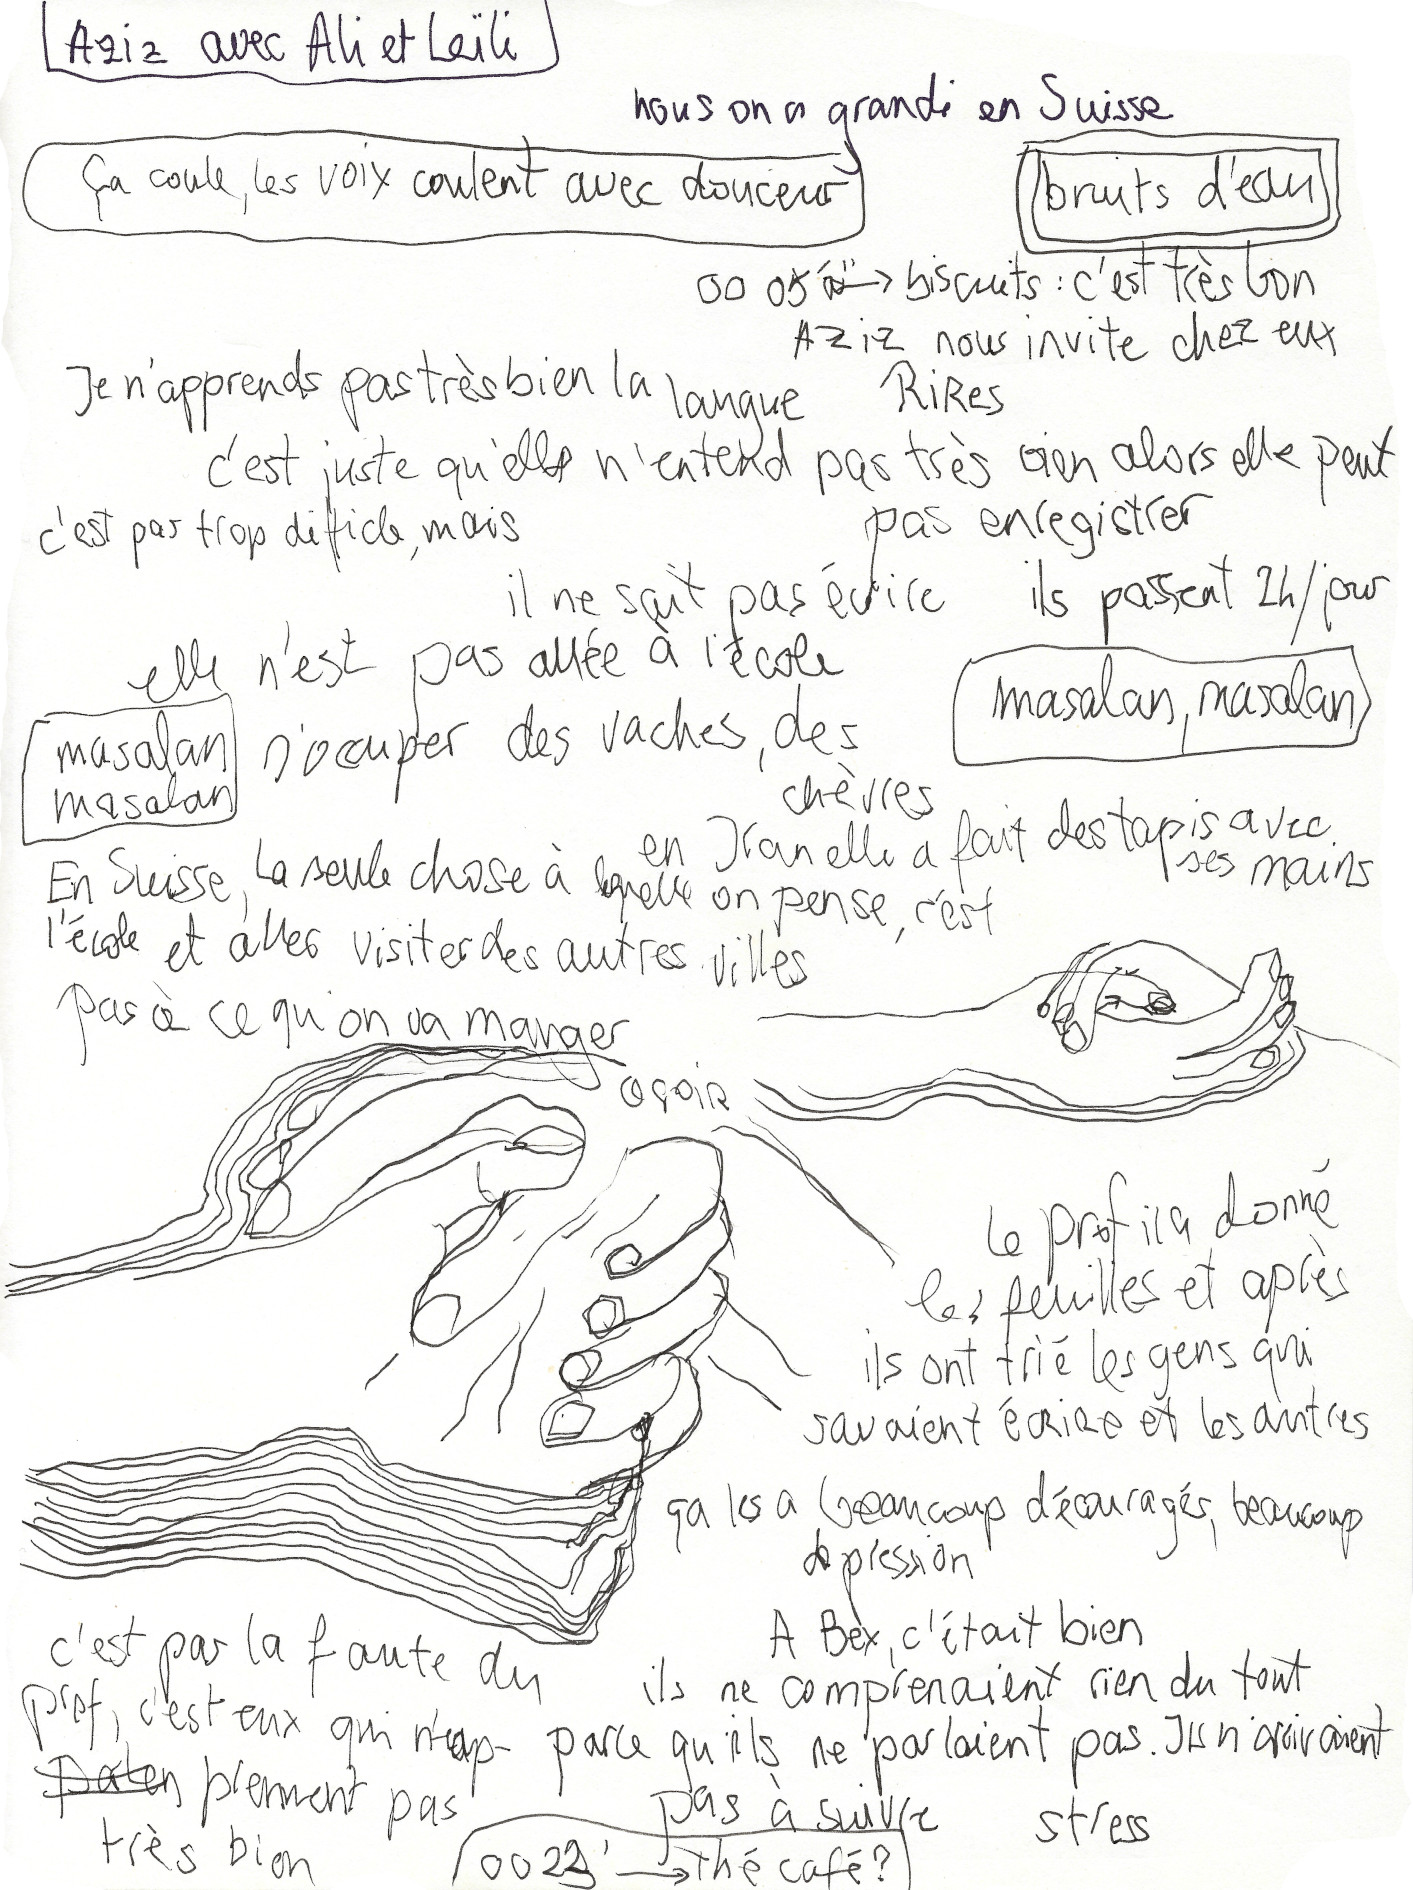 Aziz avec Ali et Leïli
nous on a grandi en Suisse
Ça coule, les voix coulent avec douceur
bruits d'eau
00 05 → biscuits : c'est très bon
Aziz nous invite chez eux
Je n'apprends pas très bien la langue
RIRES
c'est juste qu'elle n'entend pas très bien alors elle peut
pas enregistrer
c'est pas trop difficile, mais
il ne sait pas écrire
ils passent 2h/jour
elle n'est pas allée à l'école
masalan, masalan
masalan
masalan
s'occuper des vaches, des
chèvres
en Iran elle a fait des tapis avec
ses mains
En Suisse, la seule chose à laquelle on pense, c'est
l'école et aller visiter des autres villes
pas à ce qu'on va manger
Le prof il a donné
les feuilles et après
ils ont trié les gens qui
savaient écrire et les autres
ça les a beaucoup découragés, beaucoup
dépression
A Bex, c'était bien
ils ne comprenaient rien du tout
parce qu'ils ne parlaient pas. Ils n'arrivaient
pas à suivre
stress
c'est pas la faute du
prof, c'est eux qui n'ap-
prennent pas
très bien
00 23' → Thé café ?